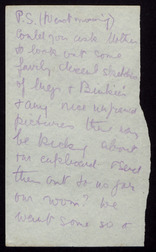 P.S. (Next morning)
Could you ask Mother
to look out some
fairly decent sketches
of Inez & Birkie's
& any nice unframed
pictures there may
be kicking about
our cupboard & send
them out to us for
our room? We
want some so